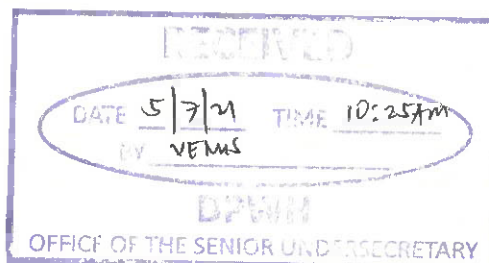 RECEIVED
DATE 5/7/21 TIME 10:25AM
BY VENUS
DPWH
OFFICE OF THE SENIOR UNDERSECRETARY